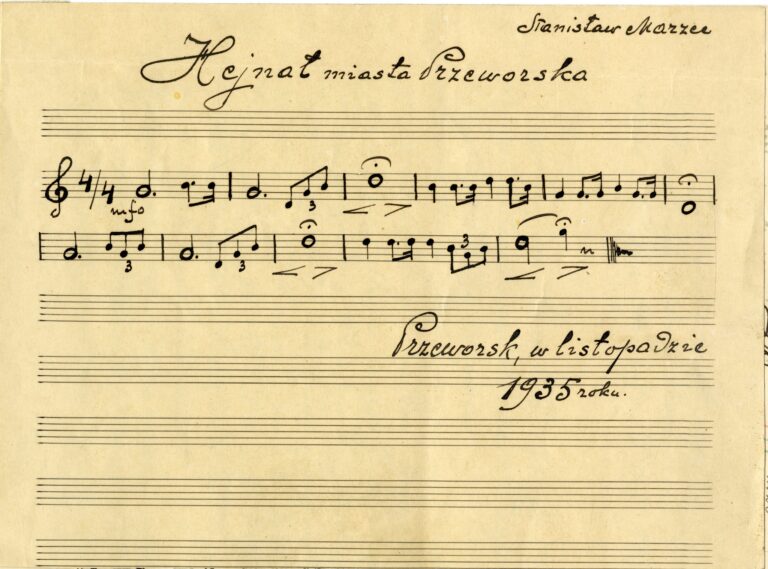 Stanisław Marzec
Hejnał miasta Przeworska
4/4 3
mfo
3 3 3
Przeworsk, w listopadzie
1935 roku.